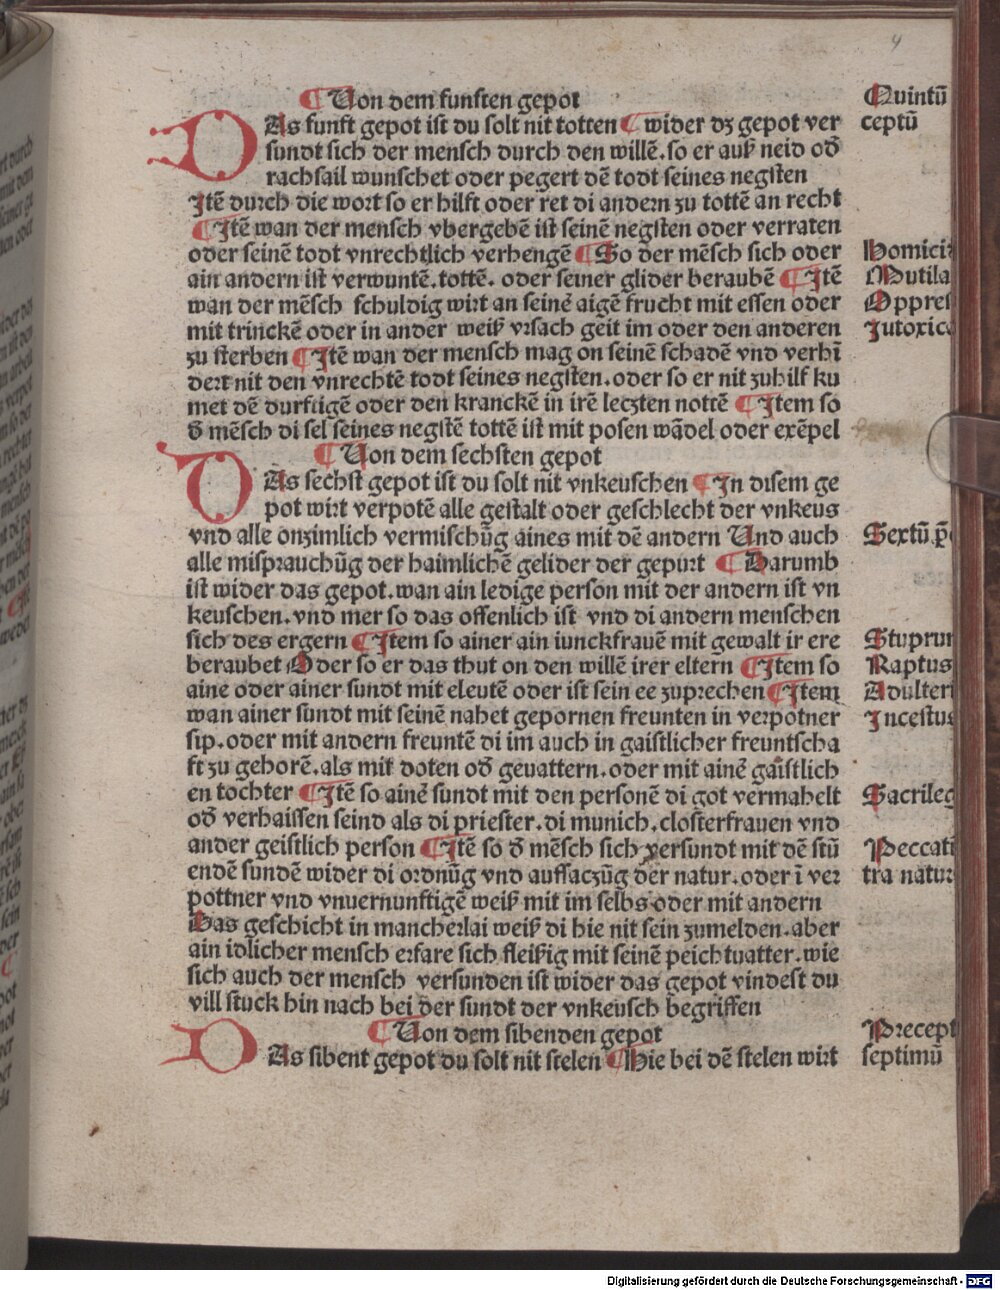 4
¶ Von dem funften gepot
DAs funft gepot ist du solt nit totten ¶ wider dz gepot ver
sundt sich der mensch durch den willē. so er auß neid od̄
rachsail wunschet oder pegert dē todt seines negsten
Itē durch die wort so er hilft oder ret di andern zu tottē an recht
¶ Itē wan der mensch vbergebē ist seinē negsten oder verraten
oder seinē todt vnrechtlich verhengē ¶ So der mēsch sich oder
ain andern ist verwuntē. tottē. oder seiner glider beraubē ¶ Itē
wan der mēsch schuldig wirt an seinē aigē frucht mit essen oder
mit trinckē oder in ander weiß vrsach geit im oder den anderen
zu sterben ¶ Itē wan der mensch mag on seinē schadē vnd verhī
dert nit den vnrechtē todt seines negsten. oder so er nit zuhilf ku
met dē durftigē oder den kranckē in irē leczten nottē ¶ Item so
d̄ mēsch di sel seines negstē tottē ist mit posen wādel oder exēpel
¶ Von dem sechsten gepot
DAs sechst gepot ist du solt nit vnkeuschen ¶ In disem ge
pot wirt verpotē alle gestalt oder geschlecht der vnkeus
vnd alle onzimlich vermischūg aines mit dē andern Und auch
alle misprauchūg der haimlichē gelider der gepurt ¶ Darumb
ist wider das gepot. wan ain ledige person mit der andern ist vn
keuschen. vnd mer so das offenlich ist vnd di andern menschen
sich des ergern ¶ Item so ainer ain iunckfrauē mit gewalt ir ere
beraubet Oder so er das thut on den willē irer eltern ¶ Item so
aine oder ainer sundt mit eleutē oder ist sein ee zuprechen ¶ Item
wan ainer sundt mit seinē nahet gepornen freunten in verpotner
sip. oder mit andern freuntē di im auch in gaistlicher freuntscha
ft zu gehorē. als mit doten od̄ gevattern. oder mit ainē gaistlich
en tochter ¶ Itē so ainē sundt mit den personē di got vermahelt
od̄ verhaissen seind als di priester. di munich. closterfrauen vnd
ander geistlich person ¶ Itē so d̄ mēsch sich versundt mit dē stū
endē sundē wider di ordnūg vnd auffaczūg der natur. oder ī ver
pottner vnd vnuernunftigē weiß mit im selbs oder mit andern
Das geschicht in mancherlai weiß di hie nit sein zumelden. aber
ain idlicher mensch erfare sich fleißig mit seinē peichtuatter. wie
sich auch der mensch versunden ist wider das gepot vindest du
vill stuck hin nach bei der sundt der vnkeusch begriffen
¶ Von dem sibenden gepot
DAs sibent gepot du solt nit stelen ¶ Hie bei dē stelen wirt
Quintū
ceptū
Homici
Mutila
Oppres
Intoxica
Sextū p̄
Stuprum
Raptus
Adulteri
Incestus
Sacrileg
Peccatū
tra natur
Precept
septimū
Digitalisierung gefördert durch die Deutsche Forschungsgemeinschaft - DFG